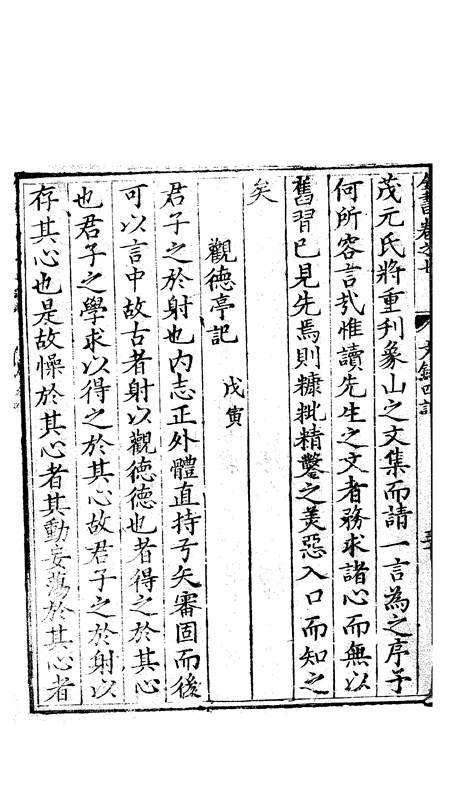 全書卷之七 文錄四 記
茂元氏將重刊象山之文集而請一言為之序予
何所容言哉惟讀先生之文者務求諸心而無以
舊習已見先焉則糠粃精鑿之美惡入口而知之
矣
觀德亭記 戊寅
君子之於射也內志正外體直持弓矢審固而後
可以言中故古者射以觀德德也者得之於其心
也君子之學求以得之於其心故君子之於射以
存其心也是故懆於其心者其動妄蕩於其心者